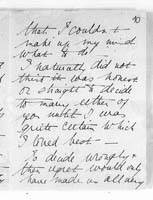 10
that I couldn't
make up my mind
what to do!
I naturally did not
think it was honest
or straight to decide
to marry either of
you until I was
quite certain which
I loved best —
To decide wrongly &
then regret would only
have made us all very